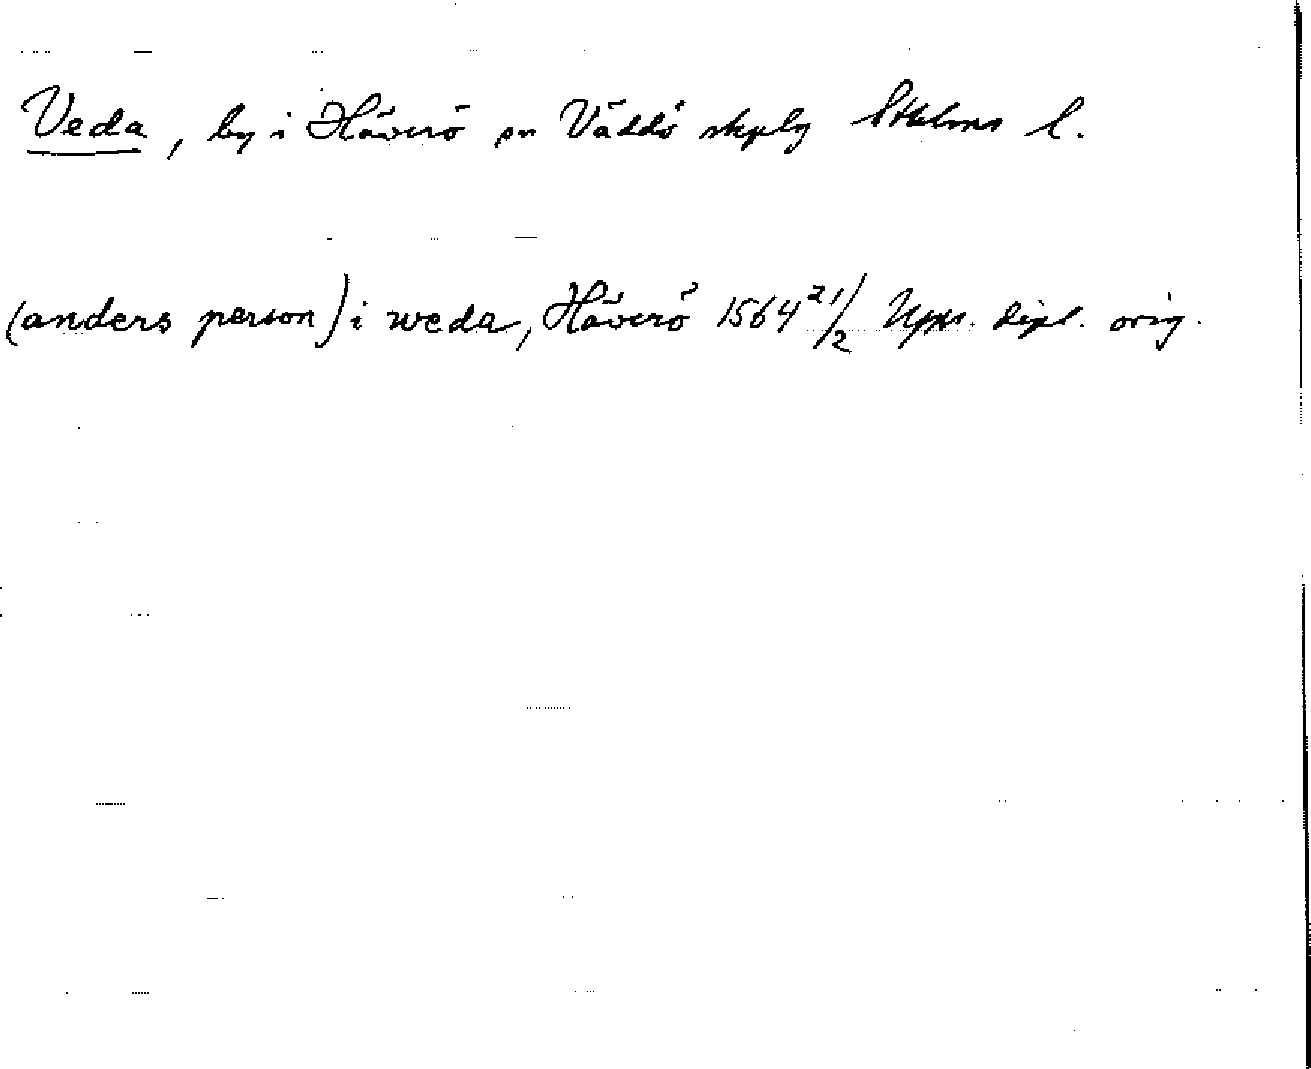 Veda, by i Häverö sn Väddö skplg Sthlms l.
(anders person) i weda, Häverö 1564 21/2 Upps. dipl. orig.